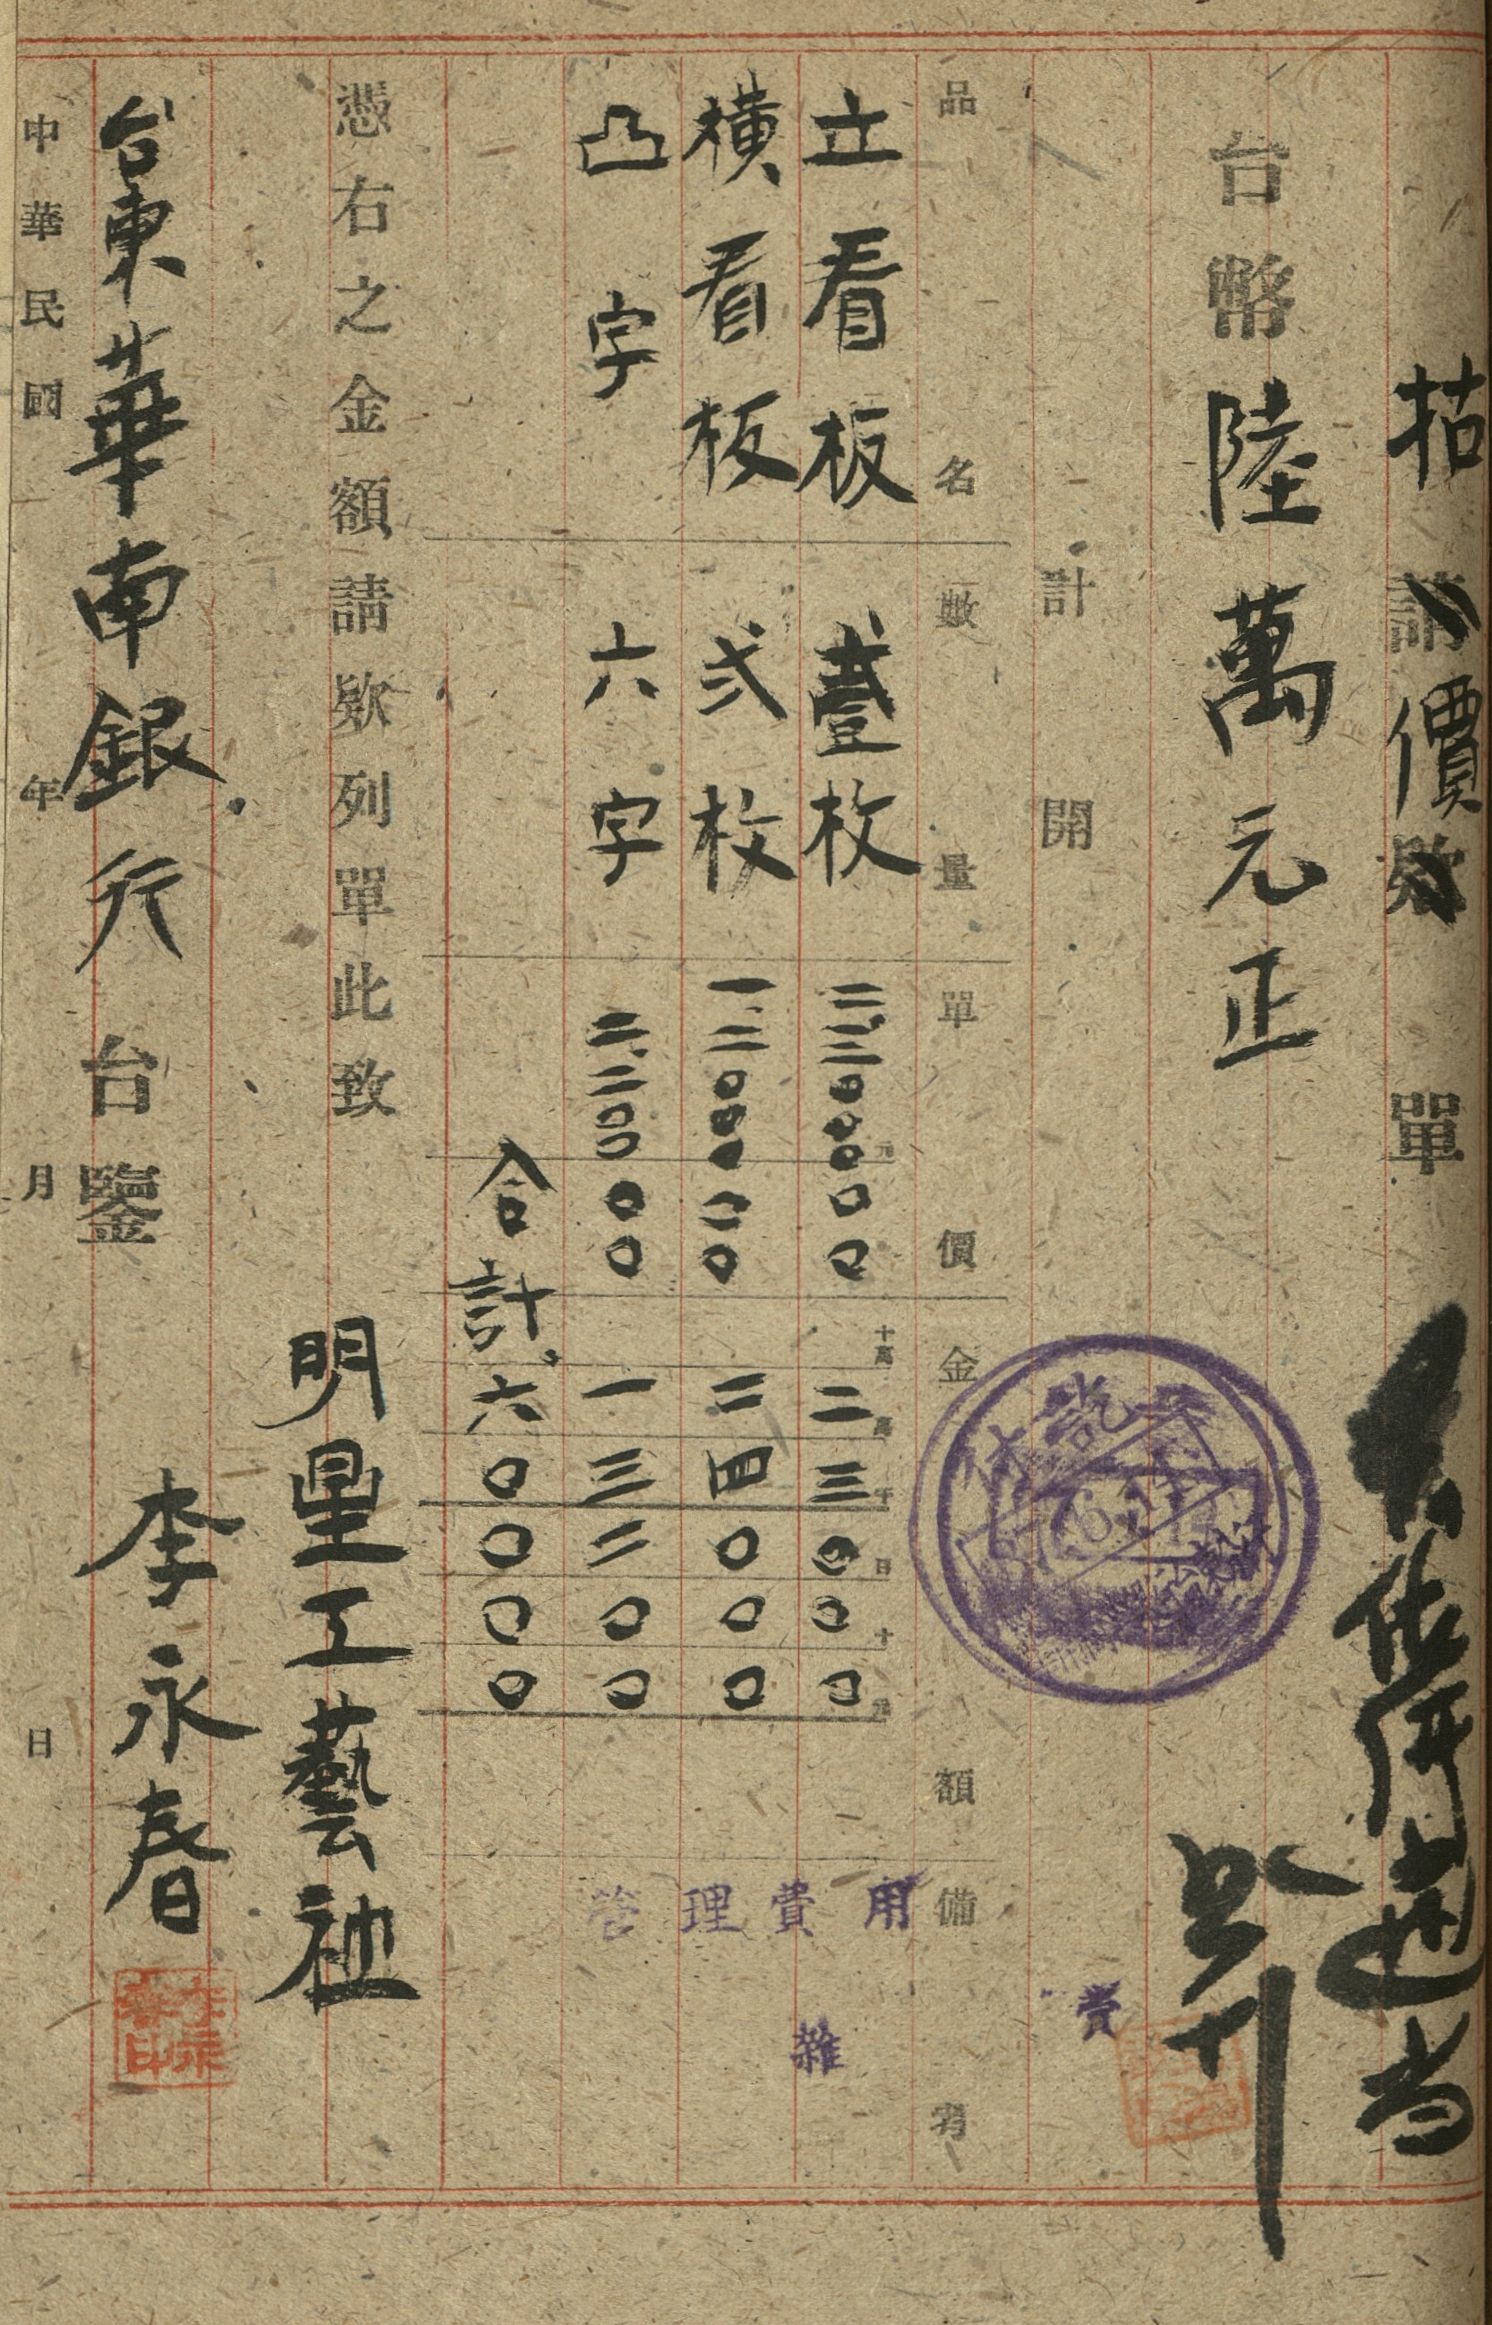 拈請價款單
台幣陸萬元正
計開
品名 數量 單價 金額 備考
立看板 壹枚 二三.〇〇〇〇〇 二三〇〇〇
橫看板 弍枚 一二.〇〇〇〇〇 二四〇〇〇
凸字 六字 二.二〇〇〇〇 一三二〇〇
合計 六〇〇〇〇
管理費用
雜
費
憑右之金額請欵列單此致
明星工藝社
台東華南銀行台鑒
李永春
李永春印
中華民國 年 月 日